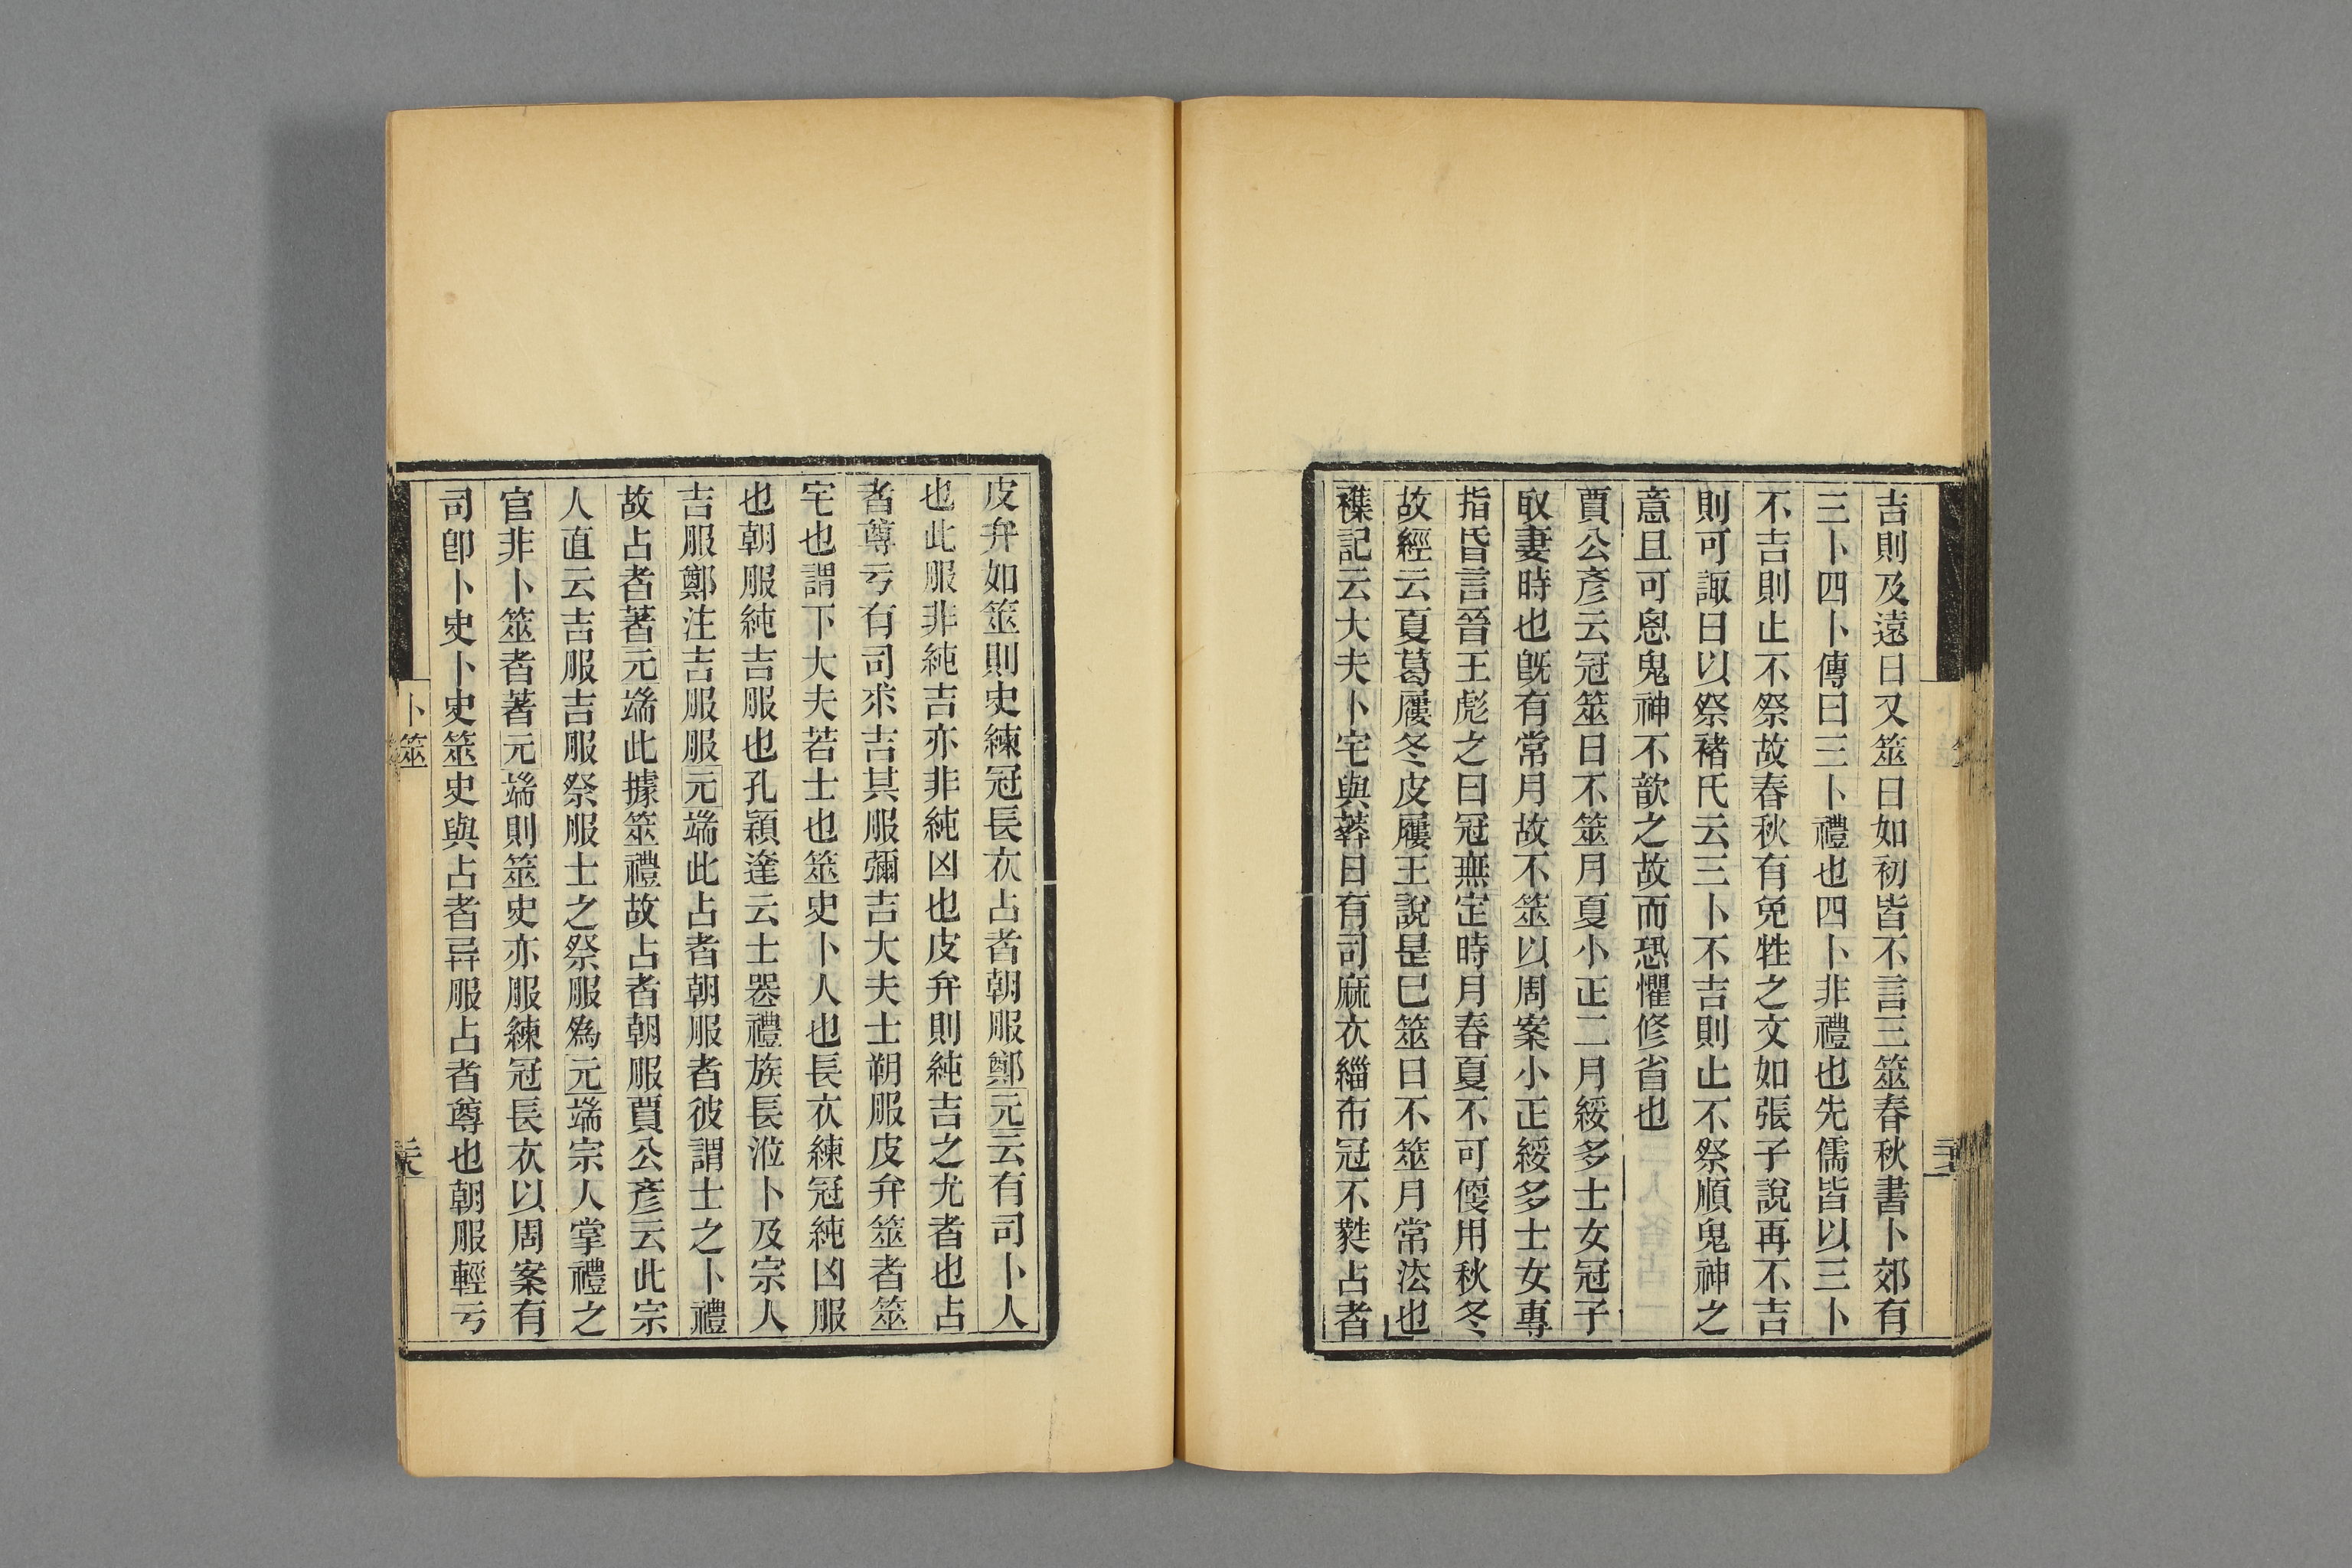 吉則及遠日又筮日如初皆不言三筮春秋書卜郊有
三卜四卜傳曰三卜禮也四卜非禮也先儒皆以三卜
不吉則止不祭故春秋有免牲之文如張子說再不吉
則可諏日以祭褚氏云三卜不吉則止不祭順鬼神之
意且可恖鬼神不歆之故而恐懼修省也
賈公彥云冠筮日不筮月夏小正二月綏多士女冠子
取妻時也旣有常月故不筮以周案小正綏多士女專
指昏言晉王彪之曰冠無定時月春夏不可偃用秋冬
故經云夏葛屨冬皮屨王說是巳筮日不筮月常法也
襍記云大夫卜宅與葬日有司麻衣緇布冠不蕤占者
皮弁如筮則史練冠長衣占者朝服鄭元云有司卜人
也此服非純吉亦非純凶也皮弁則純吉之尤者也占
者尊亏有司求吉其服彌吉大夫士朔服皮弁筮者筮
宅也謂下大夫若士也筮史卜人也長衣練冠純凶服
也朝服純吉服也孔穎達云士喪禮族長涖卜及宗人
吉服鄭注吉服服元端此占者朝服者彼謂士之卜禮
故占者著元端此據筮禮故占者朝服賈公彥云此宗
人直云吉服吉服祭服士之祭服為元端宗人掌禮之
官非卜筮者著元端則筮史亦服練冠長衣以周案有
司卽卜史卜史筮史與占者异服占者尊也朝服輕亏
卜筮